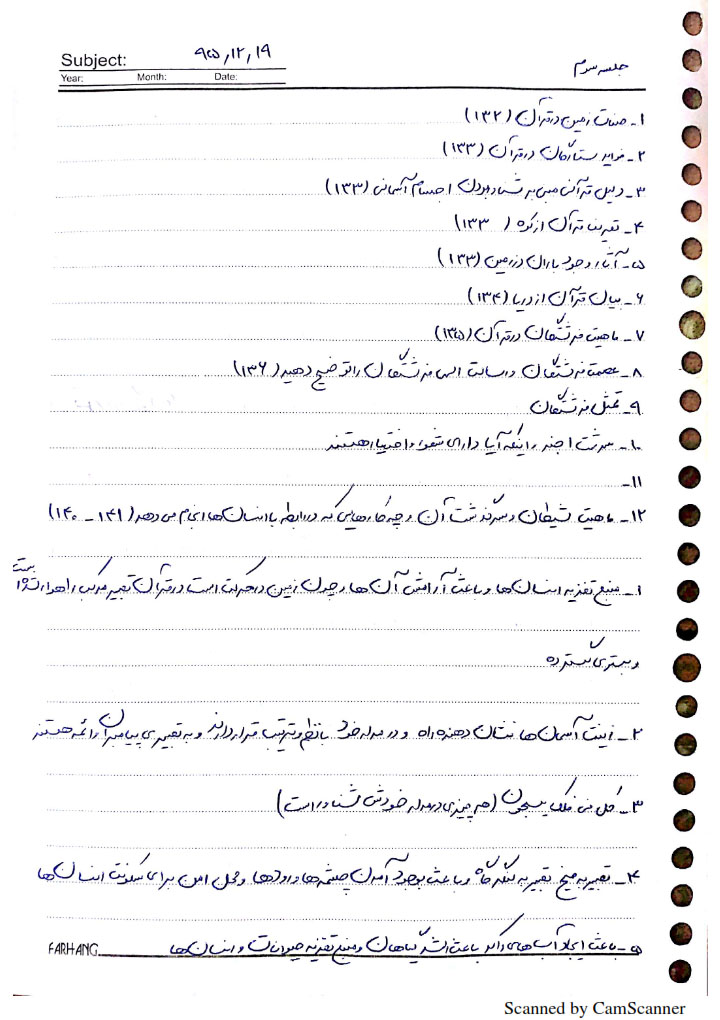 جلسه سوم
Subject: ۹۵,۱۲,۱۹
Year: Month: Date:
۱- صفات زمین در قرآن (۱۳۲)
۲- فواید ستارگان در قرآن (۱۳۳)
۳- دلیل قرآنی مبنی بر شناور بودن اجسام آسمانی (۱۳۳)
۴- تعریف قرآن از کوه (۱۳۳)
۵- آثار وجود باران در زمین (۱۳۳)
۶- بیان قرآن از دریا (۱۳۴)
۷- ماهیت فرشتگان در قرآن (۱۳۵)
۸- عصمت فرشتگان و رسالت الهی فرشتگان را توضیح دهید (۱۳۶)
۹- تمثل فرشتگان
۱۰- سرشت اجنه و اینکه آیا دارای شعور و اختیار هستند
۱۱-
۱۲- ماهیت شیطان و سرگذشت آن و چه کارهایی که در رابطه با انسان‌ها انجام می‌دهد (۱۴۱ - ۱۴۰)
۱- منبع تغذیه انسان‌ها و باعث آرامش آن‌ها و چون زمین در حرکت است در قرآن تعبیر مرکب راهوار
و بستری گسترده
۲- زینت آسمان‌ها نشان دهنده راه و در مدار خود با نظم و ترتیب قرار دارند و به تعبیری پیامبران و ائمه هستند
۳- کل فی فلک یسبحون (هر چیزی در مدار خودش شناور است)
۴- تعبیر به میخ تعبیر به لنگرگاه و باعث بوجود آمدن چشمه‌ها و رودها و محل امن برای سکونت انسان‌ها
۵- باعث ایجاد آب‌های راکد باعث رشد گیاهان و منبع تغذیه حیوانات و انسان‌ها
FARHANG
Scanned by CamScanner